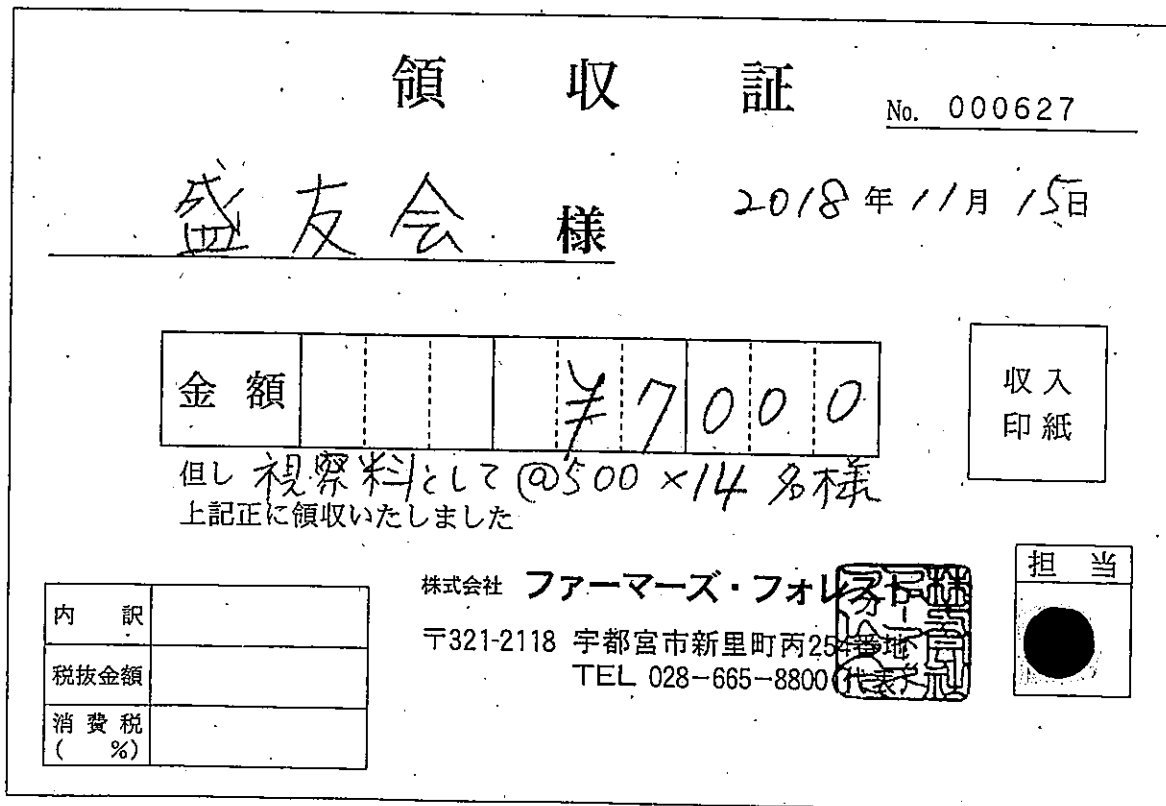 領 収 証
No. 000627
盛友会 様
2018年11月15日
金 額 ¥7000
収入
印紙
但し 視察料として @500×14名様
上記正に領収いたしました
株式会社 ファーマーズ・フォレスト
〒321-2118 宇都宮市新里町丙254番地
TEL 028-665-8800(代表)
担 当
内 訳
税抜金額
消費税
( %)